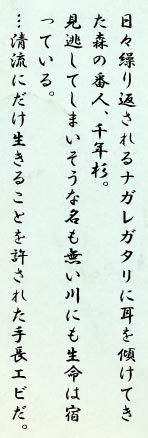 日々繰り返されるナガレガタリに耳を傾けてき
た森の番人、千年杉。
見逃してしまいそうな名も無い川にも生命は宿
っている。
…清流にだけ生きることを許された手長エビだ。